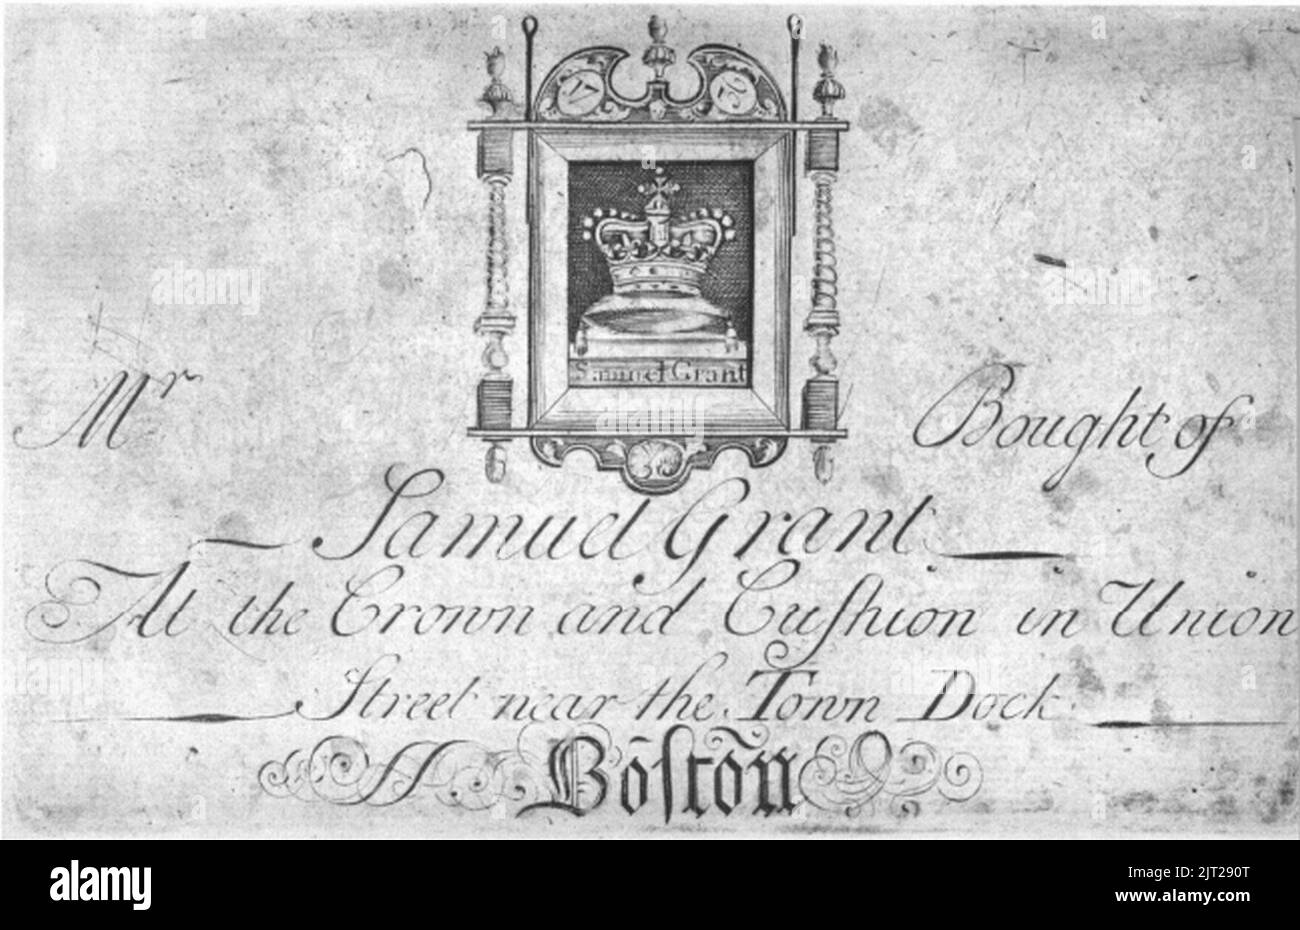 17
Samuel Grant
Mr Bought of
Samuel Grant
At the Crown and Cuſhion in Union
Street near the Town Dock
Boſton
alamy
Image ID: 2JT290T
www.alamy.com